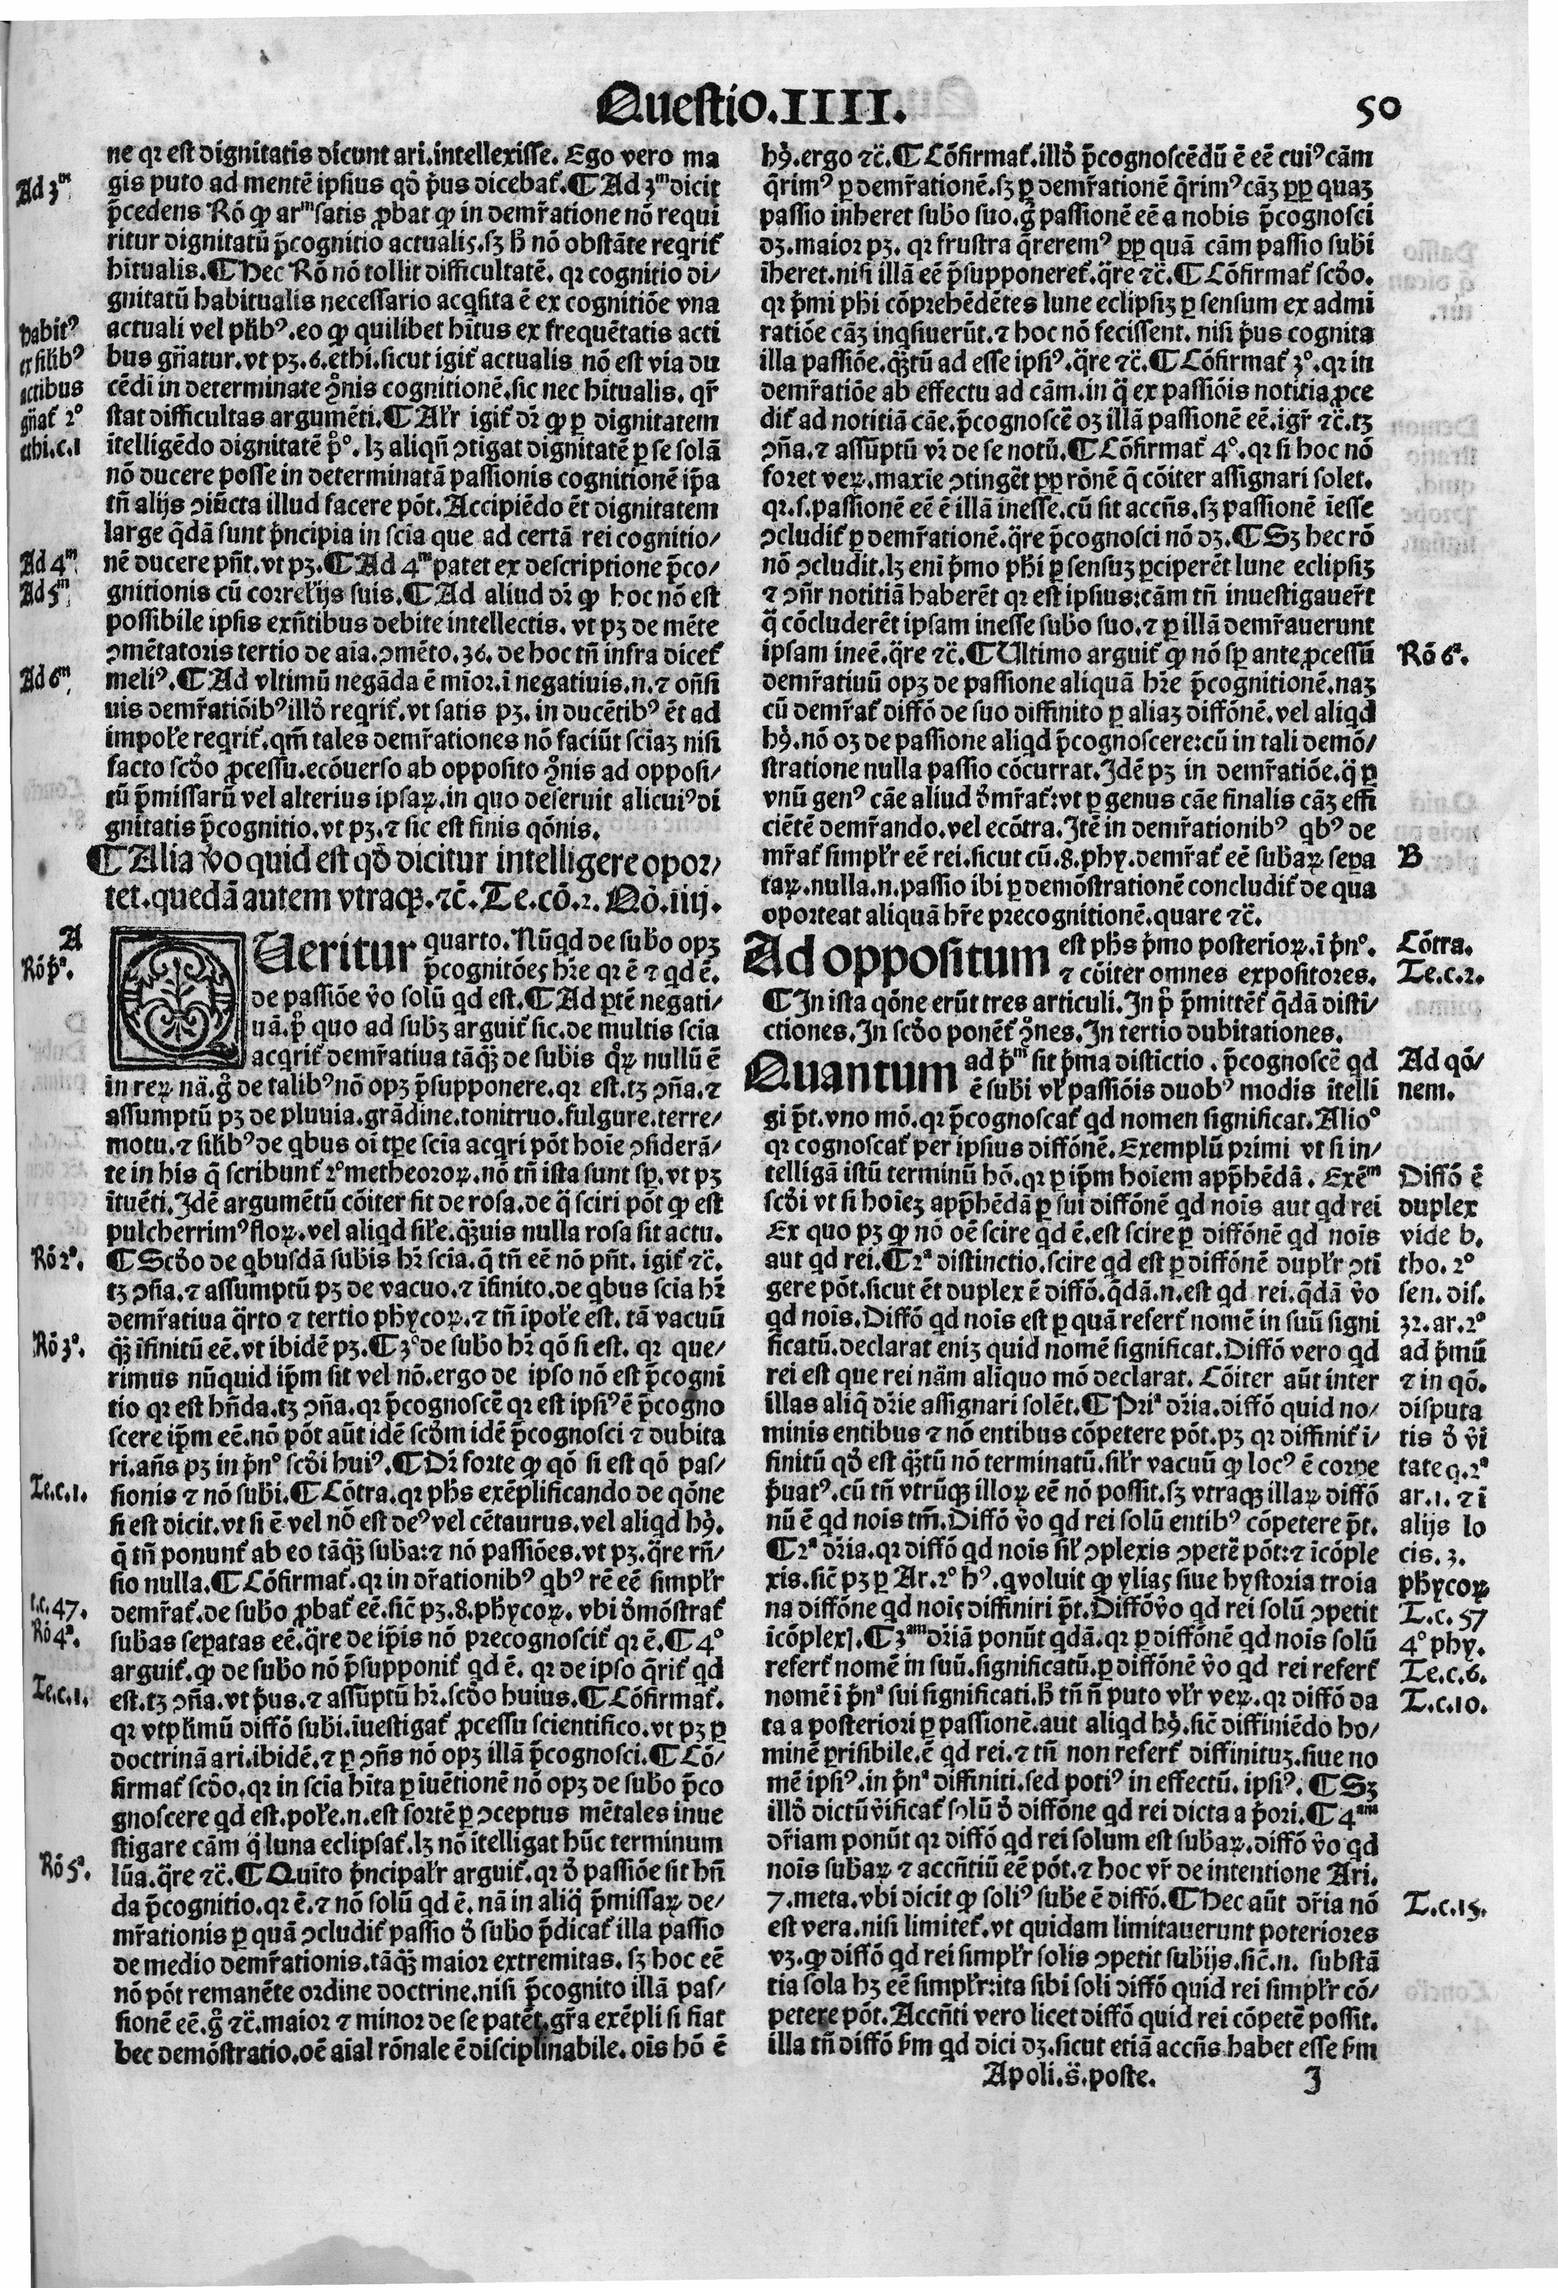 Questio.IIII.
50
Ad 3ᵐ
habitꝰ
ex silibꝰ
actibus
gñat̃ 2º
ethi.c.1
Ad 4ᵐ
Ad 5ᵐ
Ad 6ᵐ
A
Rõ pª.
Rõ 2ª.
Rõ 3ª.
Te.c.1.
t.c.47.
Rõ 4ª.
Te.c.1.
Rõ 5ª.
ne qr est dignitatis dicunt ari.intellexisse. Ego vero ma
gis puto ad mentẽ ipsius qð p̃us dicebat̃.¶Ad 3ᵐ dicit
p̃cedens Rõ ꝙ arᵐ satis ꝓbat ꝙ in demr̃atione nõ requi
ritur dignitatũ p̃cognitio actualis.sꝫ h̃ nõ obstãte reqrit̃
hĩtualis.¶Hec Rõ nõ tollit difficultatẽ. qr cognitio di⸗
gnitatũ habitualis necessario acq̃sita ẽ ex cognitiõe vna
actuali vel plibꝰ.eo ꝙ quilibet hĩtus ex frequẽtatis acti
bus gñatur.vt pꝫ.6.ethi.sicut igit̃ actualis nõ est via du
cẽdi in determinate ↄ̃nis cognitionẽ.sic nec hĩtualis. qr̃
stat difficultas argumẽti.¶Alr̃ igit̃ dr̃ ꝙ ꝑ dignitatem
ĩtelligẽdo dignitatẽ p̃º. lꝫ aliqñ ↄtigat dignitatẽ ꝑ se solã
nõ ducere posse in determinatã passionis cognitionẽ ip̃a
tñ alijs ↄiũcta illud facere põt.Accipiẽdo ẽt dignitatem
large q̃dã sunt p̃ncipia in scĩa que ad certã rei cognitio⸗
nẽ ducere pñt.vt pꝫ.¶Ad 4ᵐ patet ex descriptione p̃co⸗
gnitionis cũ correlr̃ijs suis.¶Ad aliud dr̃ ꝙ hoc nõ est
possibile ipsis exñtibus debite intellectis. vt pꝫ de mẽte
ↄmẽtatoris tertio de aĩa.ↄmẽto.36. de hoc tñ infra dicet̃
meliꝰ.¶Ad vltimũ negãda ẽ mĩor.ĩ negatiuis.n.⁊ oñsi
uis demr̃atiõibꝰ illð reqrit̃. vt satis pꝫ. in ducẽtibꝰ ẽt ad
impole reqrit̃.qm̃ tales demr̃ationes nõ faciũt sciaꝫ nisi
facto scðo ꝓcessu.ecõuerso ab opposito ↄ̃nis ad opposi⸗
tũ p̃missarũ vel alterius ipsaꝝ.in quo deseruit alicuiꝰ di
gnitatis p̃cognitio.vt pꝫ.⁊ sic est finis qõnis.
¶Alia ṽo quid est qð dicitur intelligere opor⸗
tet.quedã autem vtraqꝫ.⁊c̃.Te.cõ.2. Qõ.iiij.
QUeritur quarto.Nũqd de subo opꝫ
p̃cognitões hr̃e qr ẽ ⁊ qd ẽ.
de passiõe ṽo solũ qd est.¶Ad ptẽ negati⸗
uã.p̃ quo ad subꝫ arguit̃ sic.de multis scia
acqrit̃ demr̃atiua tãqꝫ̃ de subis qꝝ̃ nullũ ẽ
in reꝝ nã.g̃ de talibꝰ nõ opꝫ p̃supponere.qr est.tꝫ ↄña.⁊
assumptũ pꝫ de pluuia.grãdine.tonitruo.fulgure.terre⸗
motu.⁊ silibꝰ de qbus oĩ tpe scia acqri põt hoĩe ↄsiderã⸗
te in his q̃ scribunt̃ 2º metheoroꝝ.nõ tñ ista sunt sꝑ.vt pꝫ
ĩtuẽti.Idẽ argumẽtũ cõiter fit de rosa.de q̃ sciri põt ꝙ est
pulcherrimꝰ floꝝ.vel aliqd sile.qꝫ̃uis nulla rosa sit actu.
¶Scðo de qbusdã subis hr̃ scia.q̃ tñ eẽ nõ pñt. igit̃ ⁊c̃.
tꝫ ↄña.⁊ assumptũ pꝫ de vacuo.⁊ ĩfinito.de qbus scia hr̃
demr̃atiua q̃rto ⁊ tertio phycoꝝ.⁊ tñ ĩpole est. tã vacuũ
qꝫ̃ ĩfinitũ eẽ.vt ibidẽ pꝫ.¶3º de subo hr̃ qõ si est. qr que⸗
rimus nũquid ip̃m sit vel nõ.ergo de ipso nõ est p̃cogni
tio qr est hñda.tꝫ ↄña.qr p̃cognoscẽ qr est ipsiꝰ ẽ p̃cogno
scere ip̃m eẽ.nõ põt aũt idẽ scðm idẽ p̃cognosci ⁊ dubita
ri.añs pꝫ in p̃nº scði huiꝰ.¶Dr̃ forte ꝙ qõ si est qõ pas⸗
sionis ⁊ nõ subi.¶Cõtra.qr phs exẽplificando de qõne
si est dicit.vt si ẽ vel nõ est deꝰ vel cẽtaurus.vel aliqd hꝰ.
q̃ tñ ponunt̃ ab eo tãqꝫ̃ suba:⁊ nõ passiões.vt pꝫ.q̃re rñ⸗
sio nulla.¶Cõfirmat̃.qr in dr̃ationibꝰ qbꝰ rẽ eẽ simplr̃
demr̃at̃.de subo ꝓbat̃ eẽ.sic̃ pꝫ.8.phycoꝝ. vbi ðmõstrat̃
subas sepatas eẽ.q̃re de ip̃is nõ precognoscit̃ qr ẽ.¶4º
arguit̃.ꝙ de subo nõ p̃supponit̃ qd ẽ. qr de ipso q̃rit̃ qd
est.tꝫ ↄña.vt p̃us.⁊ assũptũ hr̃.scðo huius.¶Cõfirmat̃.
qr vtplimũ diffõ subi.ĩuestigat̃ ꝓcessu scientifico.vt pꝫ ꝑ
doctrinã ari.ibidẽ.⁊ ꝑ ↄñs nõ opꝫ illã p̃cognosci.¶Cõ⸗
firmat̃ scðo.qr in scia hĩta ꝑ ĩuẽtionẽ nõ opꝫ de subo p̃co
gnoscere qd est.pole.n.est sortẽ ꝑ ↄceptus mẽtales inue
stigare cãm q̃ luna eclipsat̃.lꝫ nõ ĩtelligat hũc terminum
lũa.q̃re ⁊c̃.¶Quĩto p̃ncipalr̃ arguit̃.qr ð passiõe sit hñ
da p̃cognitio.qr ẽ.⁊ nõ solũ qd ẽ. nã in aliq̃ p̃missaꝝ de⸗
mr̃ationis ꝑ quã ↄcludit̃ passio ð subo p̃dicat̃ illa passio
de medio demr̃ationis.tãqꝫ̃ maior extremitas. sꝫ hoc eẽ
nõ põt remanẽte ordine doctrine.nisi p̃cognito illã pas⸗
sionẽ eẽ.g̃ ⁊c̃.maior ⁊ minor de se patẽt.gr̃a exẽpli si fiat
hec demõstratio.oẽ aĩal rõnale ẽ disciplinabile. oĩs hõ ẽ
hꝰ.ergo ⁊c̃.¶Cõfirmat̃.illð p̃cognoscẽdũ ẽ eẽ cuiꝰ cãm
q̃rimꝰ ꝑ demr̃ationẽ.sꝫ ꝑ demr̃ationẽ q̃rimꝰ cãꝫ ꝓꝑ quaꝫ
passio inheret subo suo.g̃ passionẽ eẽ a nobis p̃cognosci
dꝫ.maior pꝫ. qr frustra q̃reremꝰ ꝓꝑ quã cãm passio subi
ĩheret.nisi illã eẽ p̃supponeret̃.q̃re ⁊c̃.¶Cõfirmat̃ scðo.
qr p̃mi phi cõprehẽdẽtes lune eclipsiꝫ ꝑ sensum ex admi
ratiõe cãꝫ inq̃siuerũt.⁊ hoc nõ fecissent. nisi p̃us cognita
illa passiõe.qꝫ̃tũ ad esse ipsiꝰ.q̃re ⁊c̃.¶Cõfirmat̃ 3º.qr in
demr̃atiõe ab effectu ad cãm.in q̃ ex passiõis notitia ꝓce
dit̃ ad notitiã cãe.p̃cognoscẽ oꝫ illã passionẽ eẽ.igr̃ ⁊c̃.tꝫ
ↄña.⁊ assũptũ vr̃ de se notũ.¶Cõfirmat̃ 4º.qr si hoc nõ
foret veꝝ.maxĩe ↄtingẽt ꝓꝑ rõnẽ q̃ cõiter assignari solet.
qr.s.passionẽ eẽ ẽ illã inesse.cũ sit accñs.sꝫ passionẽ ĩesse
ↄcludit̃ ꝑ demr̃ationẽ.q̃re p̃cognosci nõ dꝫ.¶Sꝫ hec rõ
nõ ↄcludit.lꝫ enĩ p̃mo phi ꝑ sensuꝫ ꝑciperẽt lune eclipsiꝫ
⁊ ↄñr notitiã haberẽt qr est ipsius:cãm tñ inuestigauer̃t
q̃ cõcluderẽt ipsam inesse subo suo.⁊ ꝑ illã demr̃auerunt
ipsam ineẽ.q̃re ⁊c̃.¶Ultimo arguit̃ ꝙ nõ sꝑ ante ꝓcessũ
demr̃atiuũ opꝫ de passione aliquã hr̃e p̃cognitionẽ.naꝫ
cũ demr̃at̃ diffõ de suo diffinito ꝑ aliaꝫ diffõnẽ.vel aliqd
hꝰ.nõ oꝫ de passione aliqd p̃cognoscere:cũ in tali demõ⸗
stratione nulla passio cõcurrat.Idẽ pꝫ in demr̃atiõe.q̃ ꝑ
vnũ genꝰ cãe aliud ðmr̃at̃:vt ꝑ genus cãe finalis cãꝫ effi
ciẽtẽ demr̃ando.vel ecõtra.Itẽ in demr̃ationibꝰ qbꝰ de
mr̃at̃ simplr̃ eẽ rei.sicut cũ.8.phy.demr̃at̃ eẽ subaꝝ sepa
taꝝ.nulla.n.passio ibi ꝑ demõstrationẽ concludit̃ de qua
oporteat aliquã hr̃e precognitionẽ.quare ⁊c̃.
Ad oppositum est phs p̃mo posterioꝝ.ĩ p̃nº.
⁊ cõiter omnes expositores.
¶In ista qõne erũt tres articuli.In p̃ p̃mittẽt̃ q̃dã disti⸗
ctiones.In scðo ponẽt̃ ↄ̃nes.In tertio dubitationes.
Quantum ad p̃ᵐ sit p̃ma distĩctio. p̃cognoscẽ qd
ẽ subi vl̃ passiõis duobꝰ modis ĩtelli
gi p̃t.vno mõ.qr p̃cognoscat̃ qd nomen significat.Alioº
qr cognoscat̃ per ipsius diffõnẽ.Exemplũ primi vt si in⸗
telligã istũ terminũ hõ.qr ꝑ ip̃m hoĩem app̃hẽdã. Exẽᵐ
scði vt si hoĩeꝫ app̃hẽdã ꝑ sui diffõnẽ qd noĩs aut qd rei
Ex quo pꝫ ꝙ nõ oẽ scire qd ẽ.est scire ꝑ diffõnẽ qd noĩs
aut qd rei.¶2ª distinctio.scire qd est ꝑ diffõnẽ duplr̃ ↄti
gere põt.sicut ẽt duplex ẽ diffõ.q̃dã.n.est qd rei.q̃dã ṽo
qd noĩs.Diffõ qd noĩs est ꝑ quã refert̃ nomẽ in suũ signi
ficatũ.declarat eniꝫ quid nomẽ significat.Diffõ vero qd
rei est que rei nãm aliquo mõ declarat. Cõiter aũt inter
illas aliq̃ dr̃ie assignari solẽt.¶Prĩª dr̃ia.diffõ quid no⸗
minis entibus ⁊ nõ entibus cõpetere põt.pꝫ qr diffinit̃ ĩ⸗
finitũ qð est qꝫ̃tũ nõ terminatũ.silr̃ vacuũ ꝙ locꝰ ẽ corpe
p̃uatꝰ.cũ tñ vtrũqꝫ illoꝝ eẽ nõ possit.sꝫ vtraqꝫ illaꝝ diffõ
nũ ẽ qd noĩs tm̃.Diffõ ṽo qd rei solũ entibꝰ cõpetere p̃t.
¶2ª dr̃ia.qr diffõ qd noĩs sil̃ ↄplexis ↄpetẽ põt:⁊ ĩcõple
xis.sic̃ pꝫ ꝑ Ar.2º hꝰ.q voluit ꝙ ylias siue hystoria troia
na diffõne qd nois diffiniri p̃t.Diffõ ṽo qd rei solũ ↄpetit
ĩcõplexꝭ.¶3ᵃᵐ dr̃iã ponũt qdã.qr ꝑ diffõnẽ qd noĩs solũ
refert̃ nomẽ in suũ.significatũ.ꝑ diffõnẽ ṽo qd rei refert̃
nomẽ ĩ p̃nª sui significati.h̃ tñ ñ puto vlr̃ veꝝ.qr diffõ da
ta a posteriori ꝑ passionẽ.aut aliqd hꝰ.sic̃ diffiniẽdo ho⸗
minẽ ꝑ risibile.ẽ qd rei.⁊ tñ non refert̃ diffinituꝫ.siue no
mẽ ipsiꝰ.in p̃nª diffiniti.sed potiꝰ in effectũ. ipsiꝰ. ¶Sꝫ
illð dictũ ṽificat̃ solũ ð diffõne qd rei dicta a p̃ori.¶4ᵃᵐ
dr̃iam ponũt qr diffõ qd rei solum est subaꝝ.diffõ ṽo qd
noĩs subaꝝ ⁊ accñtiũ eẽ põt.⁊ hoc vr̃ de intentione Ari.
7.meta.vbi dicit ꝙ soliꝰ sube ẽ diffõ.¶Hec aũt dr̃ia nõ
est vera.nisi limitet̃.vt quidam limitauerunt poteriores
vꝫ.ꝙ diffõ qd rei simplr̃ solis ↄpetit subijs.sic̃.n. substã
tia sola hꝫ eẽ simplr̃:ita sibi soli diffõ quid rei simplr̃ cõ⸗
petere põt.Accñti vero licet diffõ quid rei cõpetẽ possit.
illa tñ diffõ ẜm qd dici dꝫ.sicut etiã accñs habet esse ẜm
Apoli.s̃.poste.
I
Rõ 6ª.
B
Cõtra.
Te.c.2.
Ad qõ⸗
nem.
Diffõ ẽ
duplex
vide b.
tho. 2º
sen. dis.
32. ar. 2º
ad p̃mũ
⁊ in qõ.
disputa
tis ð ṽi
tate q.2ª
ar.1. ⁊ ĩ
alijs lo
cis. 3.
phycoꝝ
T.c.57
4º phy.
Te.c.6.
T.c.10.
T.c.15.